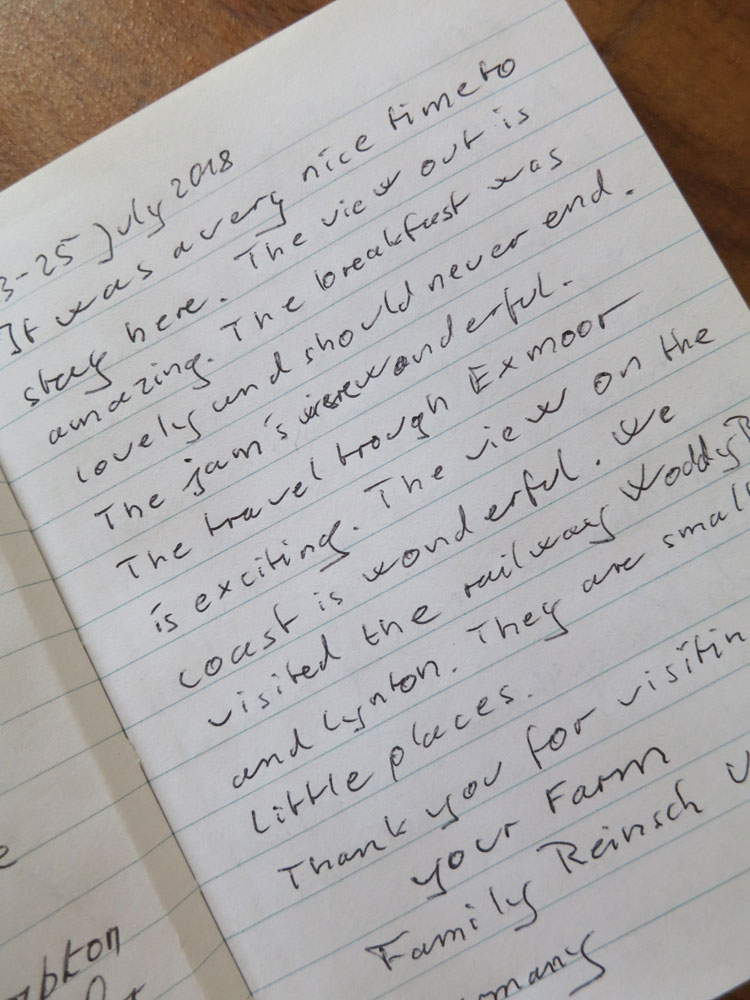 3-25 July 2018
It was a very nice time to
stay here. The view out is
amazing. The breakfast was
lovely and should never end.
The jam's were wonderful.
The travel trough Exmoor
is exciting. The view on the
coast is wonderful. We
visited the railway Woddy B
and Lynton. They are small
little places.
Thank you for visitin
your Farm
Family Reinsch
many